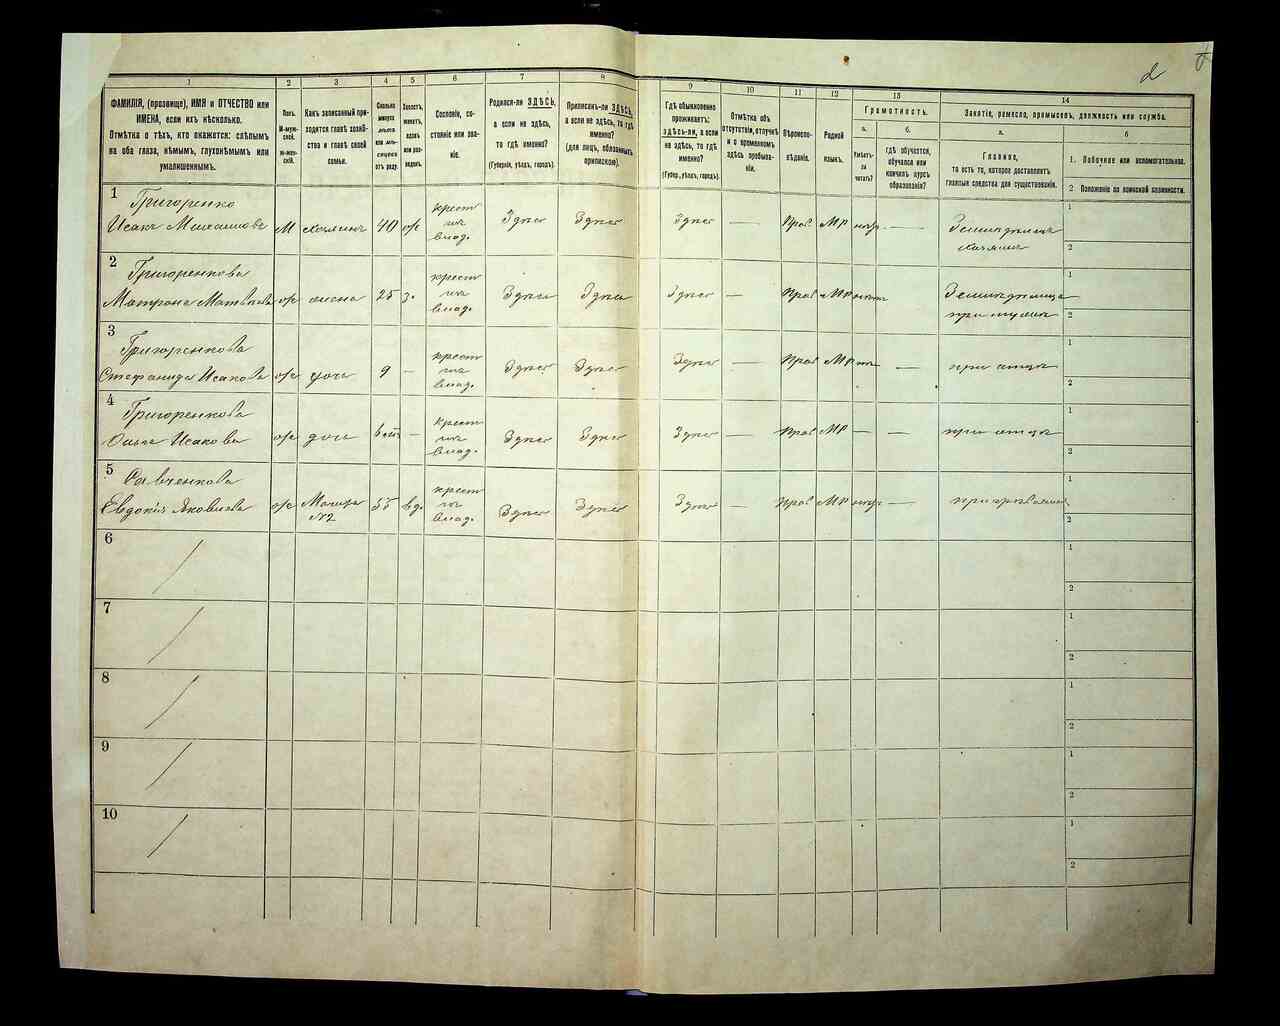 d
1
2
3
4
5
6
7
8
9
10
11
12
13
14
ФАМИЛІЯ, (прозвище), ИМЯ и ОТЧЕСТВО или
ИМЕНА, если ихъ нѣсколько.
Отмѣтка о тѣхъ, кто окажется: слѣпымъ
на оба глаза, нѣмымъ, глухонѣмымъ или
умалишеннымъ.
Полъ.
М-муж-
ской.
Ж-жен-
скій.
Какъ записанный при-
ходится главѣ хозяй-
ства и главѣ своей
семьи.
Сколько
минуло
лѣтъ
или мѣ-
сяцевъ
отъ роду.
Холостъ,
женатъ,
вдовъ
или раз-
веденъ.
Сословіе, со-
стояніе или зва-
ніе.
Родился-ли ЗДѢСЬ,
а если не здѣсь,
то гдѣ именно?
(Губернія, уѣздъ, городъ).
Приписанъ-ли ЗДѢСЬ,
а если не здѣсь, то гдѣ
именно?
(для лицъ, обязанныхъ
припискою).
Гдѣ обыкновенно
проживаетъ:
здѣсь-ли, а если
не здѣсь, то гдѣ
именно?
(Губер., уѣздъ, городъ).
Отмѣтка объ
отсутствіи, отлучкѣ
и о временномъ
здѣсь пребыва-
ніи.
Вѣроиспо-
вѣданіе.
Родной
языкъ.
Грамотность.
а.
б.
Умѣетъ-
ли
читать?
гдѣ обучается,
обучался или
кончилъ курсъ
образованія?
Занятіе, ремесло, промыселъ, должность или служба.
а.
б
Главное,
то есть то, которое доставляетъ
главныя средства для существованія.
1. Побочное или вспомогательное.
2 Положеніе по воинской повинности.
1
Григоренко
Исакъ М хозяинъ 40 ж крест изъ влад. Здѣсь Здѣсь Здѣсь — Прав МР — хозяинъ
1
2
2
Григоренкова
Матрона ж жена 25 з. крест изъ влад. Здѣсь Здѣсь Здѣсь — Прав МР
1
2
3
Григоренкова
Стефанида Исакова ж дочь 9 — крест изъ влад. Здѣсь Здѣсь Здѣсь — Прав МР — при отцѣ
1
2
4
Григоренкова
Исакова ж дочь — крест изъ влад. Здѣсь Здѣсь Здѣсь — Прав МР — — при отцѣ
1
2
5
Савченкова
Евдокія Яковлева ж №2 55 вд. крест изъ влад. Здѣсь Здѣсь Здѣсь — Прав МР —
1
2
6
1
2
7
1
2
8
1
2
9
1
2
10
1
2